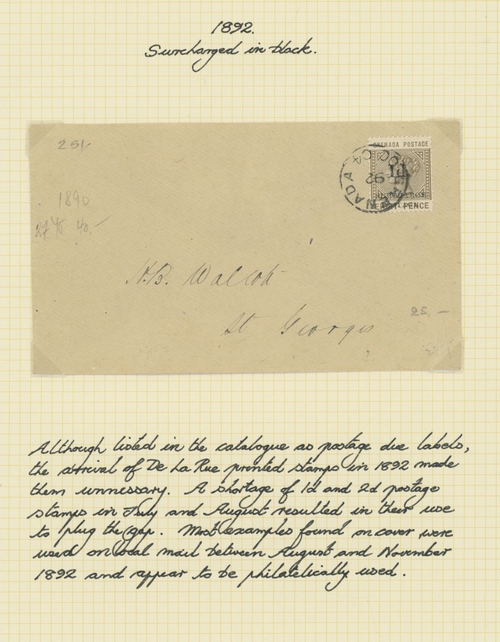 1892.
Surcharged in black.
25/-
GRENADA POSTAGE
1d
GRENADA
OC
92
1890
PENCE
40.-
H.B. Walcott
25.-
St Georges
Although listed in the catalogue as postage due labels,
the arrival of De La Rue printed stamps in 1892 made
them unnessary. A shortage of 1d and 2d postage
stamps in July and August resulted in their use
to plug the gap. Most examples found on cover were
used on local mail between August and November
1892 and appear to be philatelically used.